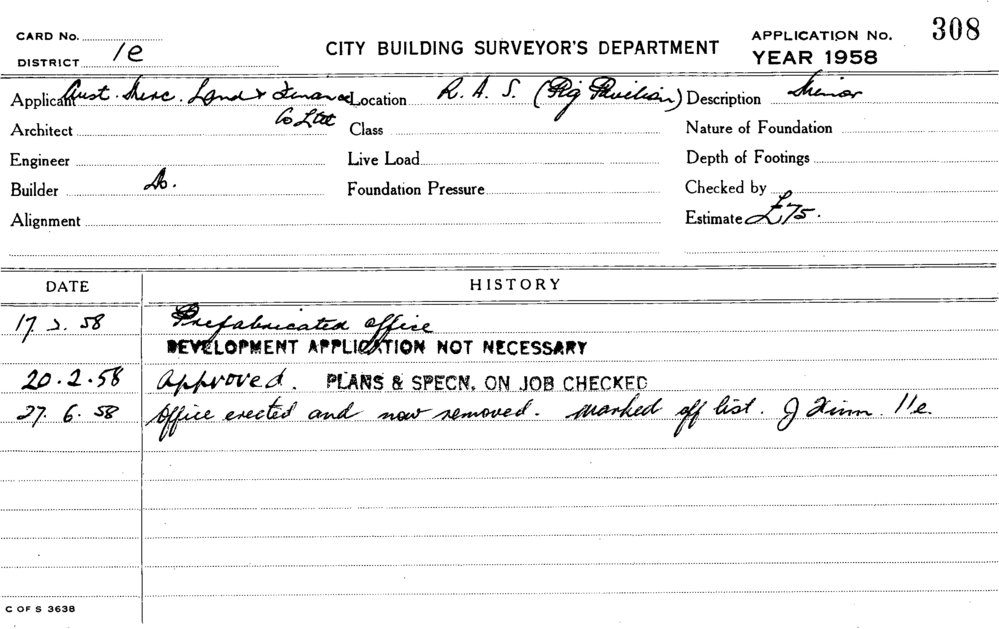 CARD No.
DISTRICT 1e
CITY BUILDING SURVEYOR'S DEPARTMENT
APPLICATION No. 308
YEAR 1958
Applicant Aust. Merc. Land & Finance Co Ltd
Location R. A. S. (Pig Pavilion)
Description Minor
Architect
Class
Nature of Foundation
Engineer
Live Load
Depth of Footings
Builder Do.
Foundation Pressure
Checked by
Alignment
Estimate £75.
DATE HISTORY
17 2. 58 Prefabricated office
DEVELOPMENT APPLICATION NOT NECESSARY
20.2.58 Approved. PLANS & SPECN. ON JOB CHECKED
27. 6. 58 Office erected and now removed. Marked off list. J 11e.
C OF S 3638